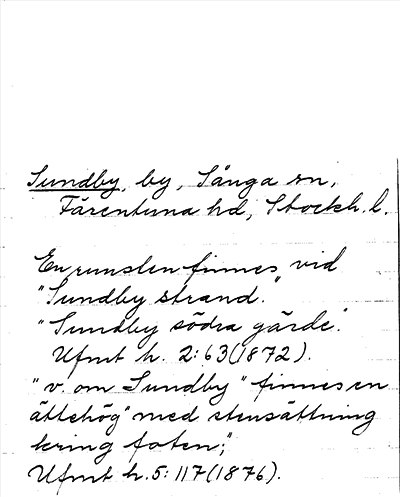 Sundby, by, Sånga sn,
Färentuna hd, Stockh. l.
En runsten finnes vid
"Sundby strand."
"Sundby södra gärde".
Ufmt h. 2:63 (1872).
"v. om Sundby" finnes en
ättehög "med stensättning
kring foten",
Ufmt h. 5: 117 (1876).